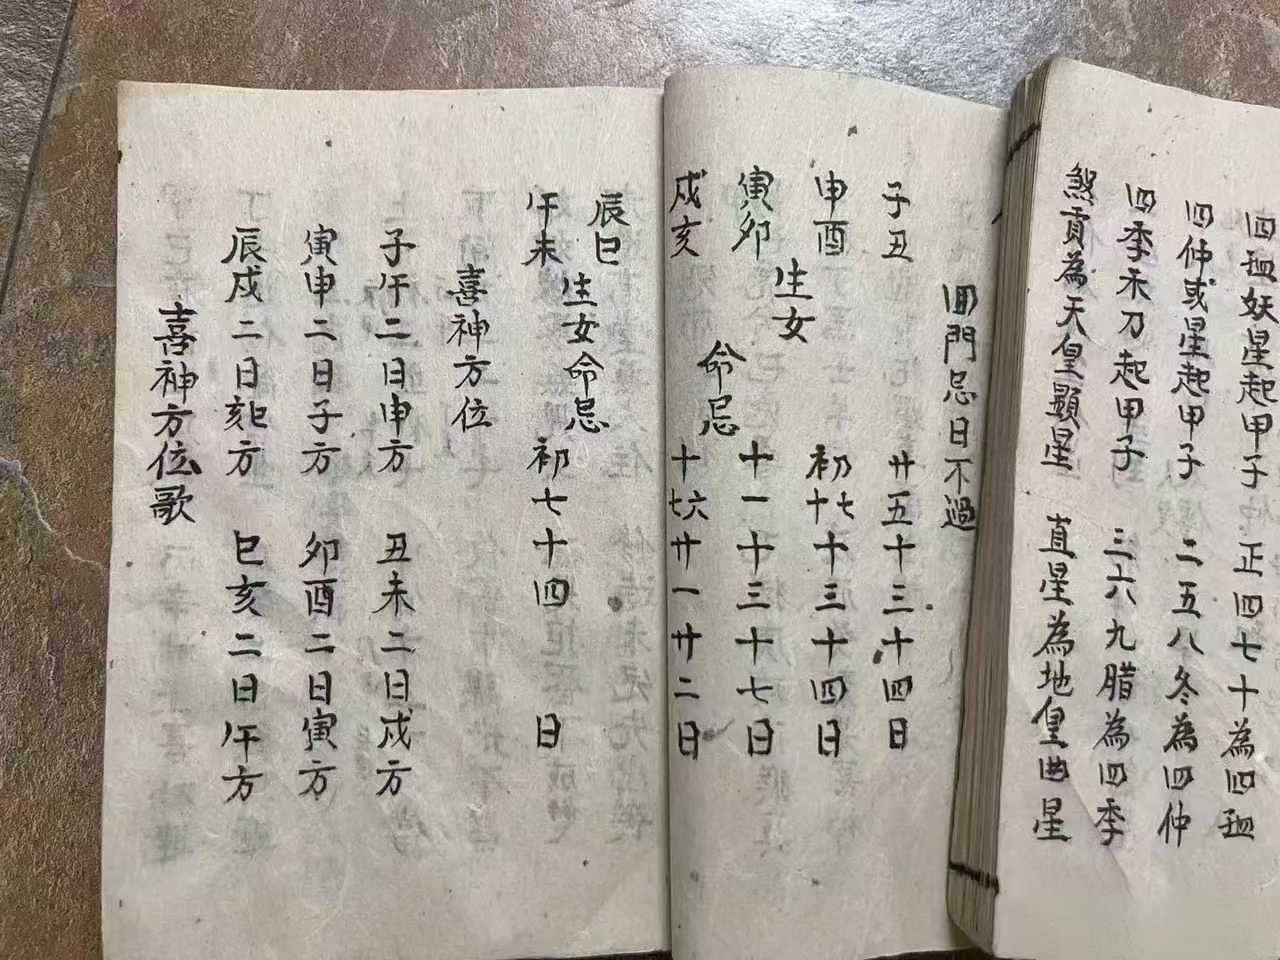 四孟妖星起甲子 正四七十為四孟
四仲或星起甲子 二五八冬為四仲
四季禾刀起甲子 三六九腊為四季
煞貢為天皇顯星 直星為地皇曲星
回門忌日不過
子丑 廿五十三十四日
申酉 初七十十三十四日
生女
寅卯 十一十三十七日
命忌
戌亥 十六十七廿一廿二日
辰巳
生女命忌
午未 初七十四日
喜神方位
子午二日申方 丑未二日戌方
寅申二日子方 卯酉二日寅方
辰戌二日亥方 巳亥二日午方
喜神方位歌